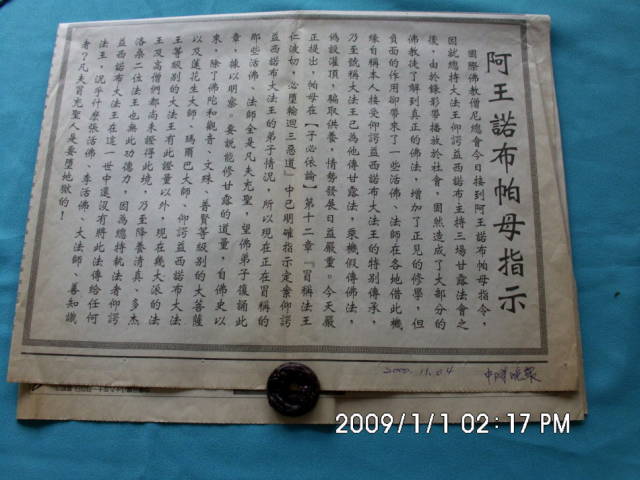 阿王諾布帕母指示
國際佛教僧尼總會今日接到阿王諾布帕母指令,
因就總持大法王仰諤益西諾布主持三場甘露法會之
後,由於錄影帶播放於社會,固然造成了大部分的
佛教徒了解到真正的佛法,增加了正見的修學,但
負面的作用卻帶來了一些活佛、法師在各地借此機
緣自稱本人接受仰諤益西諾布大法王的特別傳承,
乃至號稱大法王已為他傳甘露法,乘機假傳佛法,
偽設灌頂,騙取供養,情勢發展日益嚴重。今天嚴
正提出,帕母在【了必依論】第十二章『冒稱法王
仁波切,必墮輪迴三惡道』中已明確指示定案仰諤
益西諾布大法王的弟子情況,所以現在正在冒稱的
那些活佛、法師全是凡夫充聖,望佛弟子復誦此
章,據以明察。要說能修甘露的道量,自佛史以
來,除了佛陀和觀音、文殊、普賢等級別的大菩薩
以及蓮花生大師、瑪爾巴大師、仰諤益西諾布大法
王等級別的大法王有此證量以外,現在幾大派的法
王及高僧們都尚未證得此境,乃至降養清真、多杰
洛桑二位法王也無此功德力,因為總持執法者仰諤
益西諾布大法王在這一世中還沒有將此法傳給任何
法王,況乎什麼張活佛、李活佛、大法師、善知識
者?凡夫冒充聖人是要墮地獄的!
2000.11.04
中時晚報
2009/1/1 02:17 PM